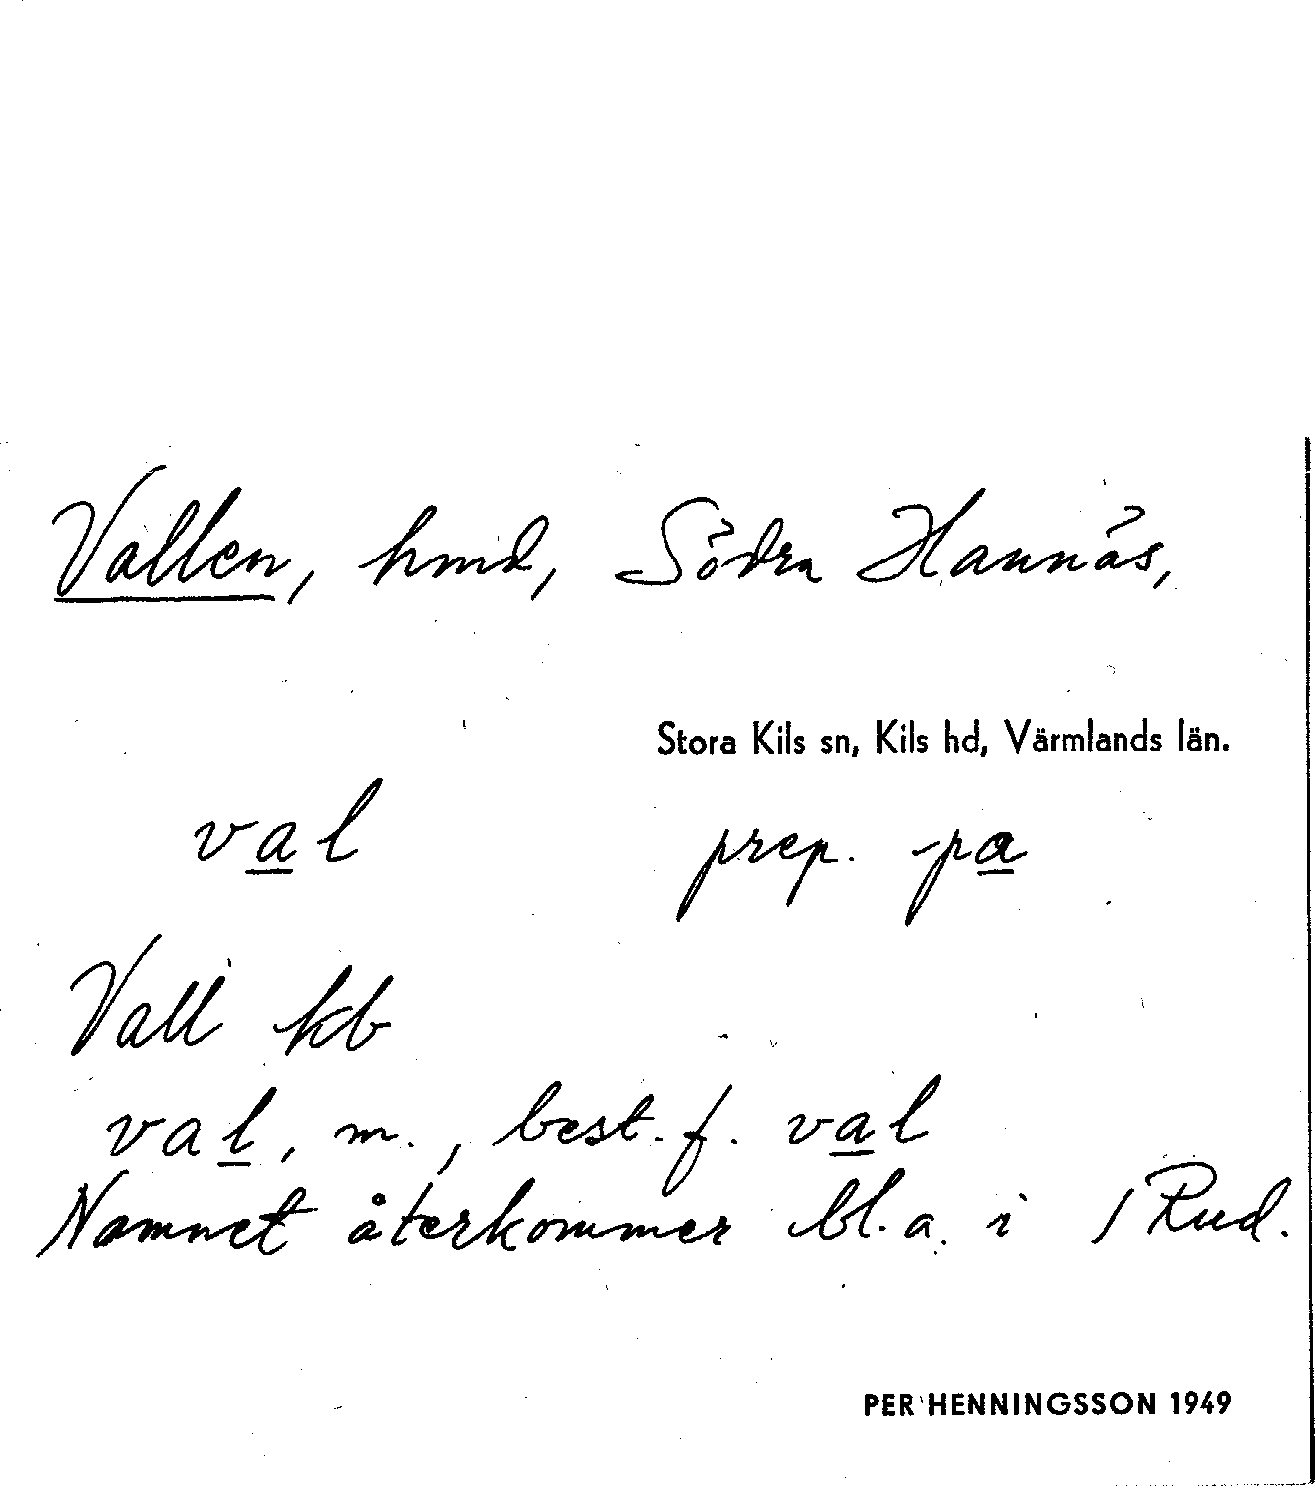 Vallen, hmd, Södra Hannäs,
Stora Kils sn, Kils hd, Värmlands län.
val prep. pa
Vall kb
val, m., best. f. val
Namnet återkommer bl. a. i / Rud.
PER HENNINGSSON 1949